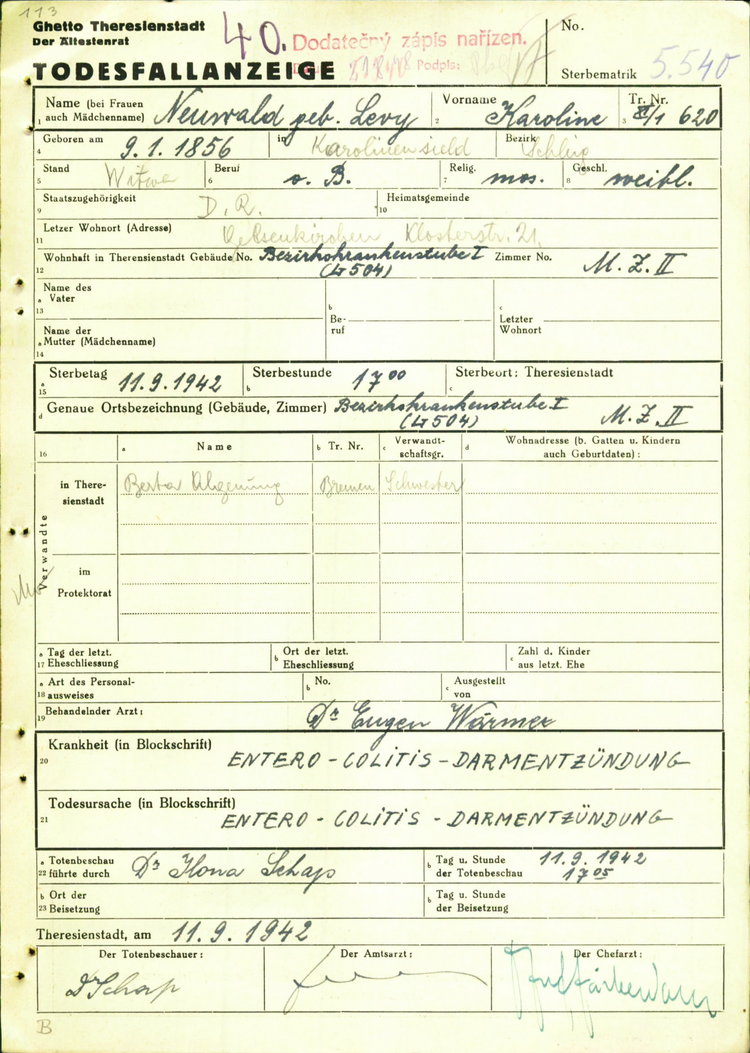 113
Ghetto Theresienstadt
Der Ältestenrat
40.
Dodatečný zápis nařízen.
Podpis:
No.
TODESFALLANZEIGE
Sterbematrik 5.540
Name (bei Frauen auch Mädchenname) Neuwald geb. Levy
Vorname Karoline
Tr. Nr. 620
1 2 3
Geboren am 9.1.1856 in Karolinensield Bezirk
4
Stand Witwe Beruf o. B. Relig. mos. Geschl. weibl.
5 6 7 8
Staatszugehörigkeit D.R. Heimatsgemeinde
9 10
Letzer Wohnort (Adresse) Gelsenkirchen Klosterstr. 21.
11
Wohnhaft in Theresienstadt Gebäude No. Bezirkskrankenstube I (L 504) Zimmer No. M.Z. II
12
Name des Vater
a
13
b Beruf
c Letzter Wohnort
Name der Mutter (Mädchenname)
a
14
a 15 Sterbetag 11.9.1942
b Sterbestunde 17 00
c Sterbeort: Theresienstadt
d Genaue Ortsbezeichnung (Gebäude, Zimmer) Bezirkskrankenstube I (L 504) M.Z. II
16 a Name b Tr. Nr. c Verwandtschaftsgr. d Wohnadresse (b. Gatten u. Kindern auch Geburtdaten):
Verwandte
in Theresienstadt
Berta Bremen Schwester
im Protektorat
a 17 Tag der letzt. Eheschliessung
b Ort der letzt. Eheschliessung
c Zahl d. Kinder aus letzt. Ehe
a 18 Art des Personalausweises
b No.
c Ausgestellt von
19 Behandelnder Arzt: Dr Eugen Wärmer
Krankheit (in Blockschrift)
20 ENTERO - COLITIS - DARMENTZÜNDUNG
Todesursache (in Blockschrift)
21 ENTERO - COLITIS - DARMENTZÜNDUNG
a 22 Totenbeschau führte durch Dr Ilona Schap
b Tag u. Stunde der Totenbeschau 11.9.1942 17 05
a 23 Ort der Beisetzung
b Tag u. Stunde der Beisetzung
Theresienstadt, am 11.9.1942
Der Totenbeschauer: Der Amtsarzt: Der Chefarzt:
Dr Schap
B